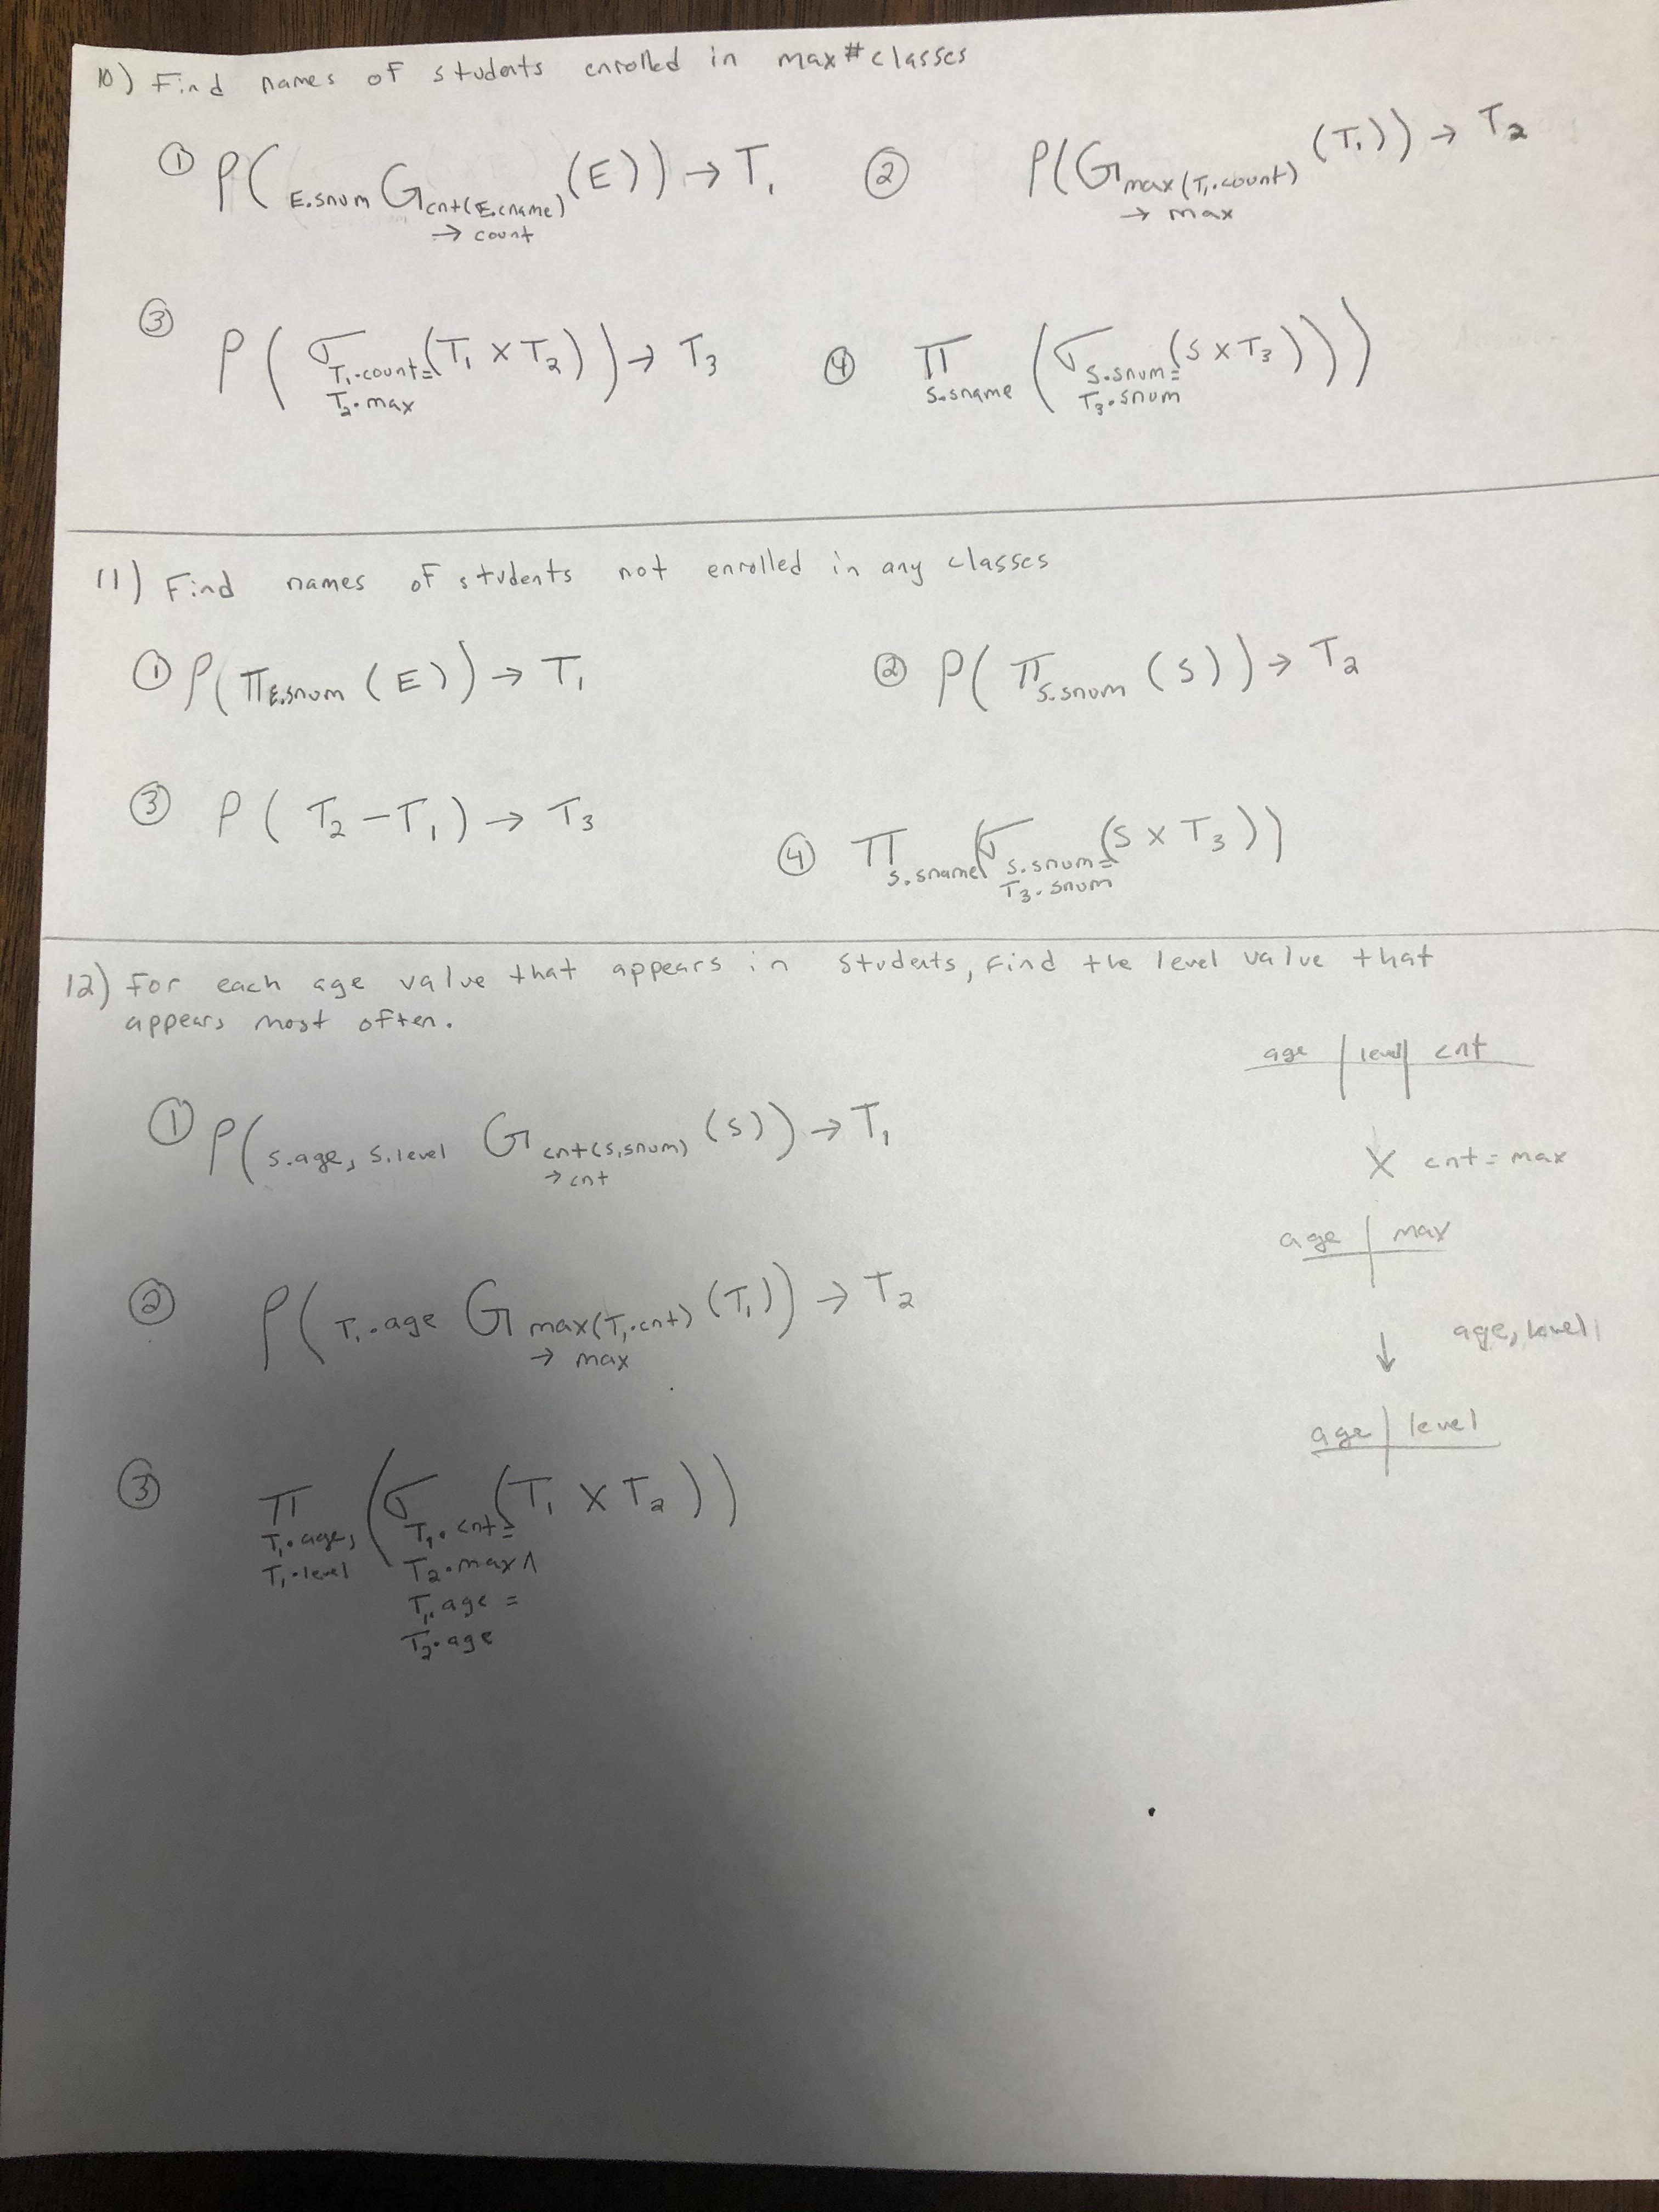 10) Find names of students enrolled in max # classes
① ρ( E.snum G cnt(E.cname) → count (E)) → T₁
② ρ(G max(T₁.count) → max (T₁)) → T₂
③ ρ( σ T₁.count = T₂.max (T₁ × T₂)) → T₃
④ π S.sname (σ S.snum = T₃.snum (S × T₃)))
11) Find names of students not enrolled in any classes
① ρ(π E.snum (E)) → T₁
② ρ( π S.snum (S)) → T₂
③ ρ( T₂ − T₁) → T₃
④ π S.sname (σ S.snum = T₃.snum (S × T₃))
12) For each age value that appears in Students, find the level value that
appears most often.
① ρ( S.age, S.level G cnt(S.snum) → cnt (S)) → T₁
② ρ( T₁.age G max(T₁.cnt) → max (T₁)) → T₂
③ π T₁.age, T₁.level (σ T₁.cnt = T₂.max ∧ T₁.age = T₂.age (T₁ × T₂))
age | level | cnt
× cnt = max
age | max
↓ age, level
age | level